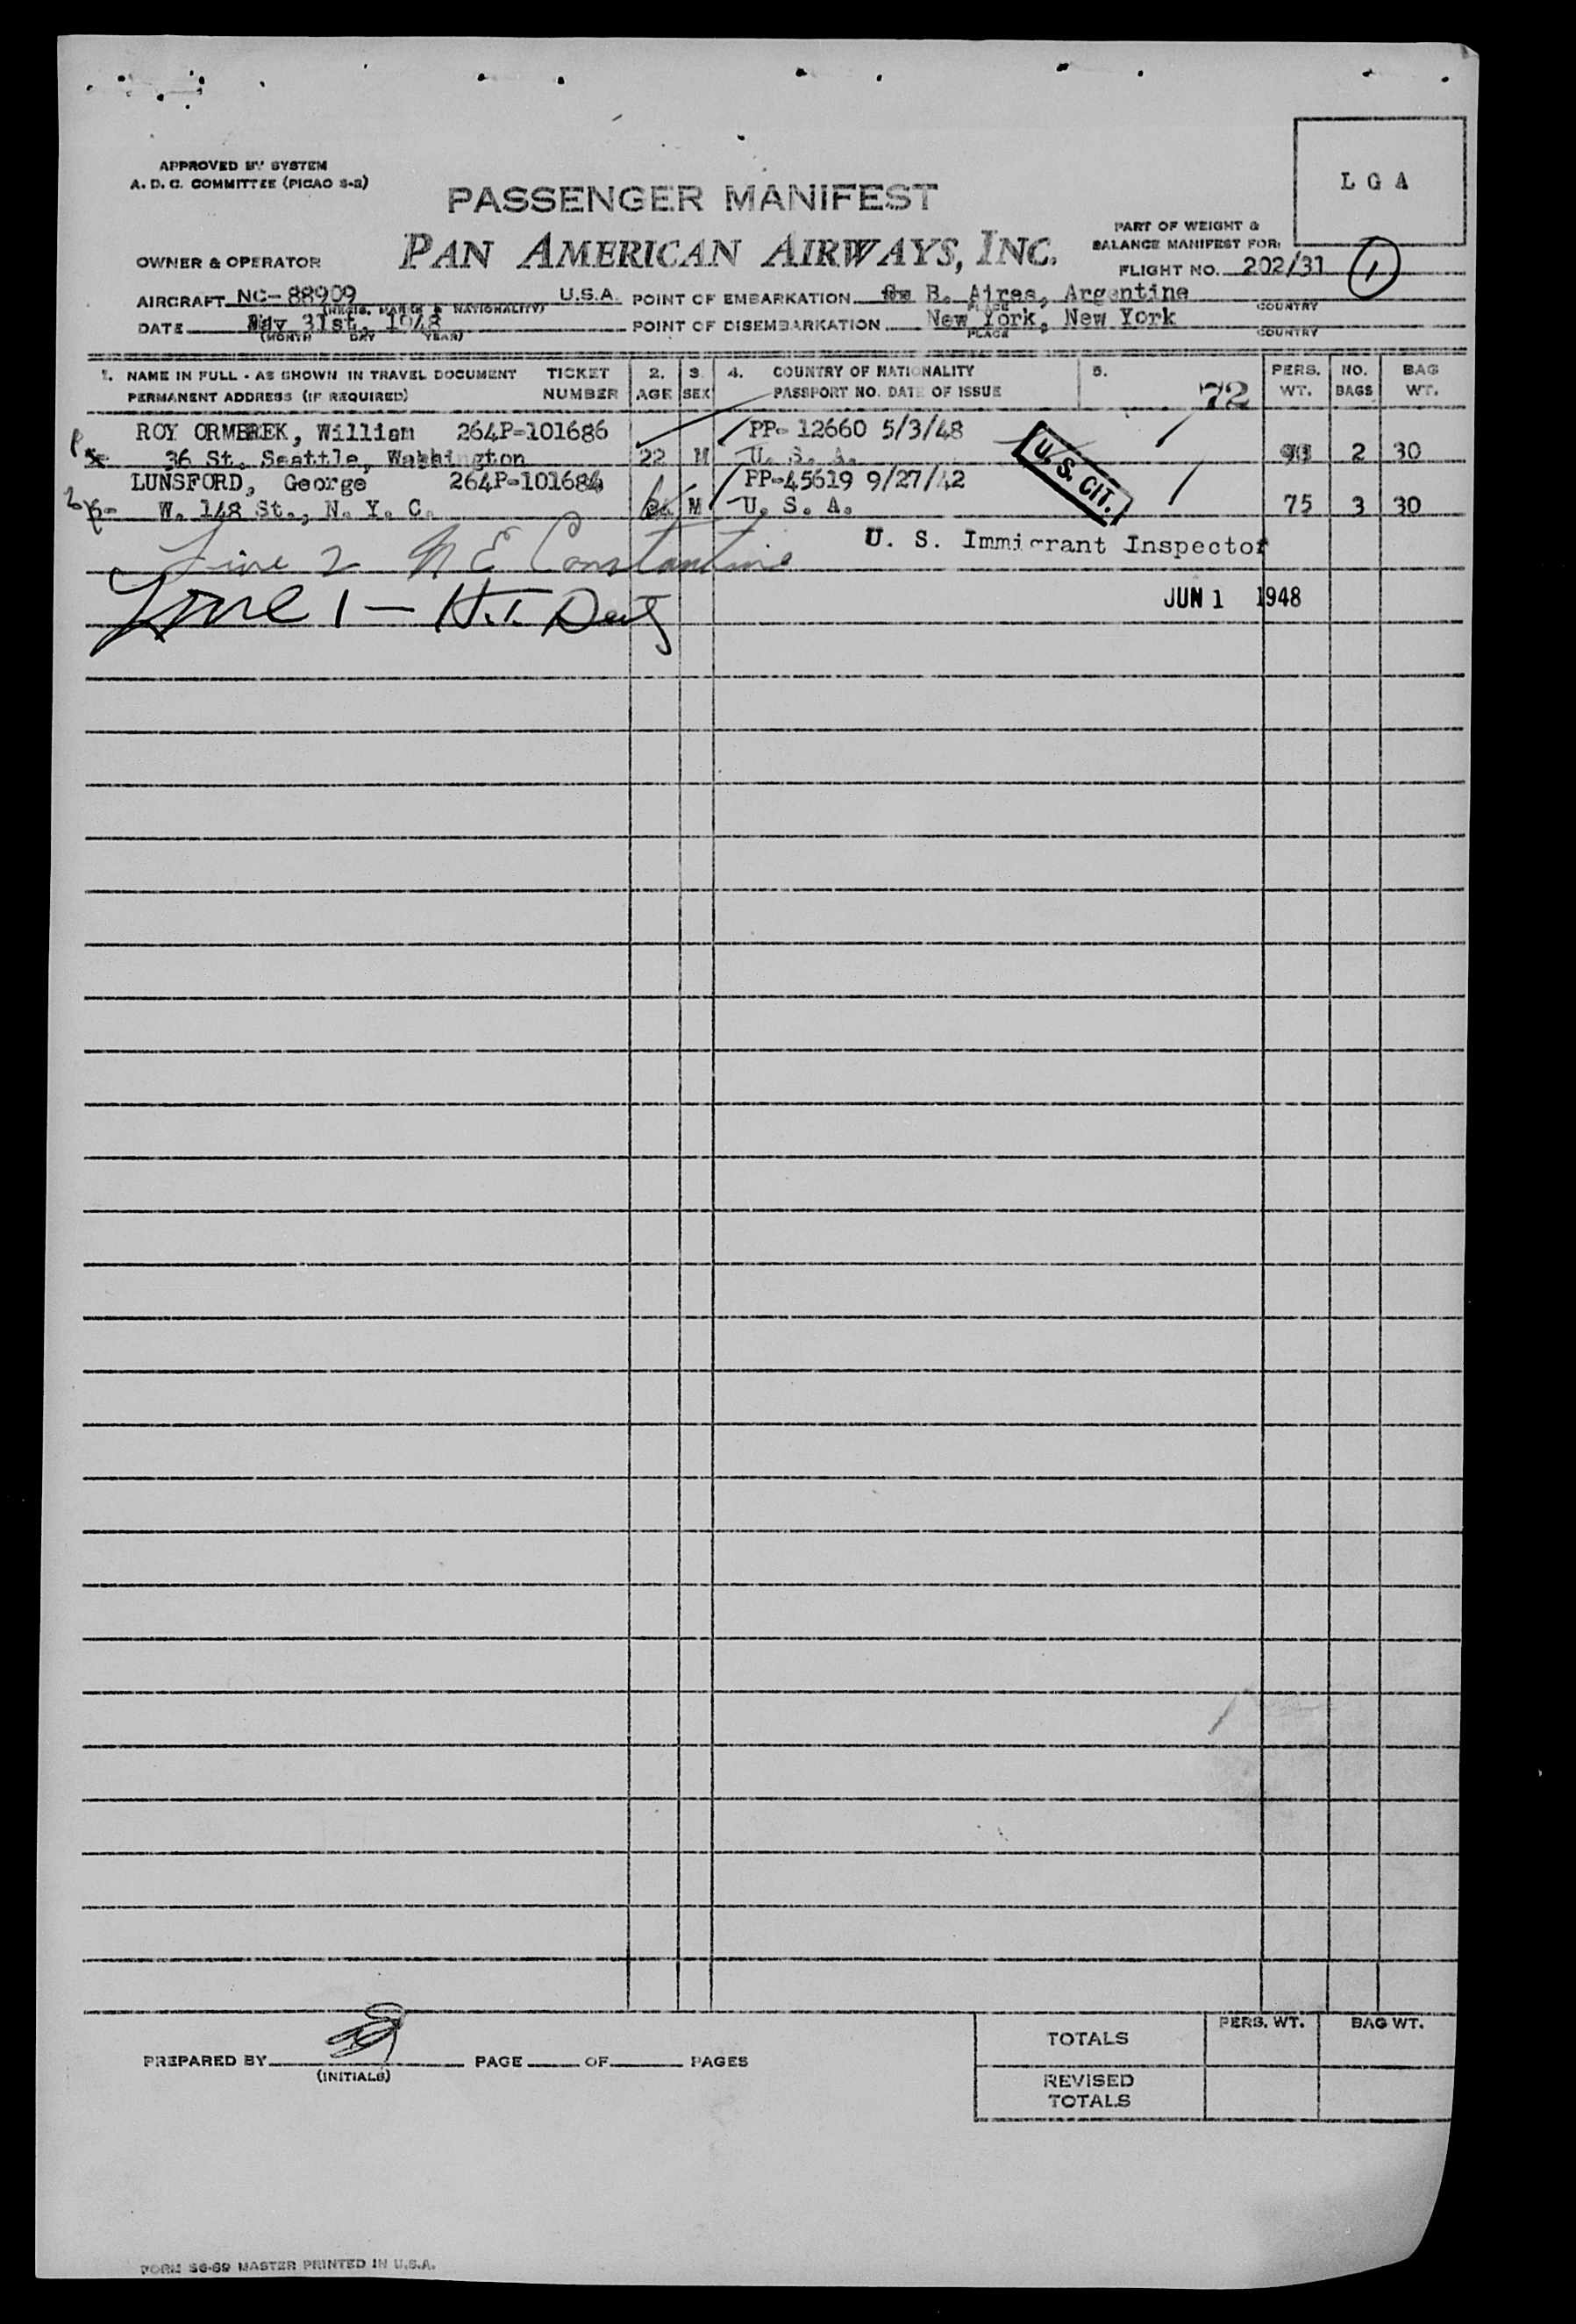 APPROVED BY SYSTEM
A. D. C. COMMITTEE (PICAO S-2)
L G A
PASSENGER MANIFEST
PART OF WEIGHT &
BALANCE MANIFEST FOR:
OWNER & OPERATOR PAN AMERICAN AIRWAYS, INC.
FLIGHT NO. 202/31 1
AIRCRAFT NC-88909 U.S.A. POINT OF EMBARKATION B. Aires, Argentine
(REGIS. MARKS & NATIONALITY) PLACE COUNTRY
DATE May 31st, 1948 POINT OF DISEMBARKATION New York, New York
(MONTH DAY YEAR) PLACE COUNTRY
1. NAME IN FULL - AS SHOWN IN TRAVEL DOCUMENT TICKET 2. 3. 4. COUNTRY OF NATIONALITY 5. PERS. NO. BAG
PERMANENT ADDRESS (IF REQUIRED) NUMBER AGE SEX PASSPORT NO. DATE OF ISSUE 72 WT. BAGS WT.
ROY ORMBREK, William 264P-101686 PP- 12660 5/3/48
36 St. Seattle, Washington 22 M U. S. A. 2 30
U.S. CIT.
LUNSFORD, George 264P-101684 PP-45619 9/27/42
W. 148 St., N. Y. C. M U. S. A. 75 3 30
U. S. Immigrant Inspector
Line 2 N E Constantine
Line 1 - H.T.
JUN 1 1948
TOTALS PERS. WT. BAG WT.
PREPARED BY PAGE OF PAGES
(INITIALS)
REVISED
TOTALS
FORM S6-69 MASTER PRINTED IN U.S.A.